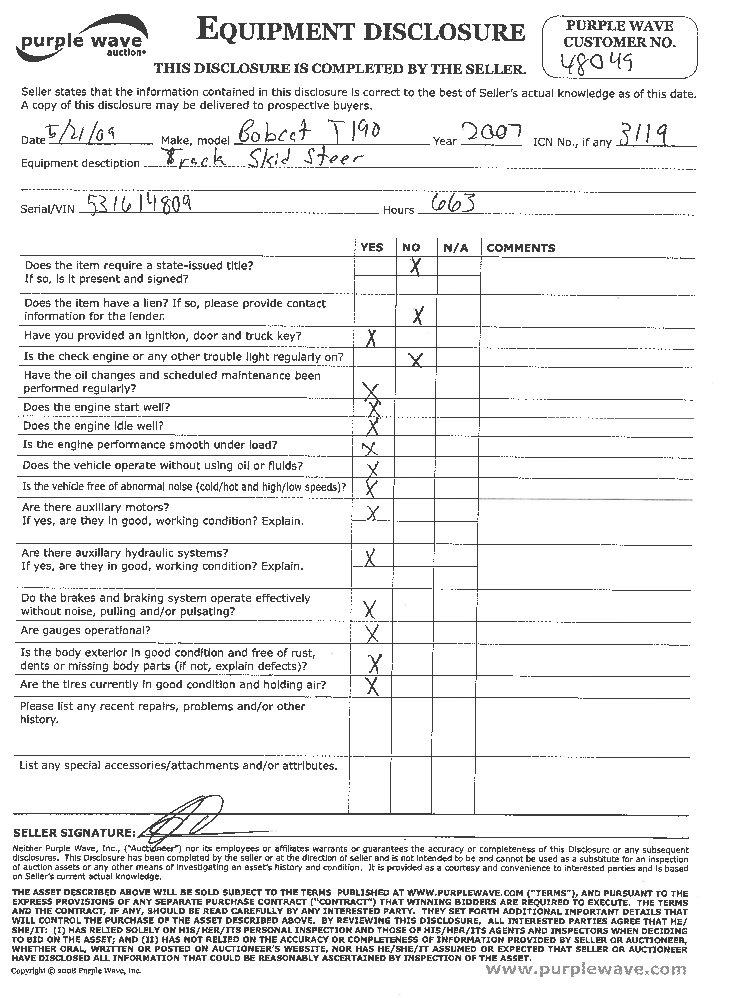 purple wave
auction
EQUIPMENT DISCLOSURE
THIS DISCLOSURE IS COMPLETED BY THE SELLER.
PURPLE WAVE
CUSTOMER NO.
48049
Seller states that the information contained in this disclosure is correct to the best of Seller's actual knowledge as of this date.
A copy of this disclosure may be delivered to prospective buyers.
Date 5/21/09 Make, model Bobcat T190 Year 2007 ICN No., if any 3119
Equipment desctiption Track Skid Steer
Serial/VIN 531614809 Hours 663
YES NO N/A COMMENTS
Does the item require a state-issued title? X
If so, is it present and signed?
Does the item have a lien? If so, please provide contact
information for the lender. X
Have you provided an ignition, door and truck key? X
Is the check engine or any other trouble light regularly on? X
Have the oil changes and scheduled maintenance been
performed regularly? X
Does the engine start well? X
Does the engine idle well? X
Is the engine performance smooth under load? X
Does the vehicle operate without using oil or fluids? X
Is the vehicle free of abnormal noise (cold/hot and high/low speeds)? X
Are there auxiliary motors? X
If yes, are they in good, working condition? Explain.
Are there auxiliary hydraulic systems? X
If yes, are they in good, working condition? Explain.
Do the brakes and braking system operate effectively
without noise, pulling and/or pulsating? X
Are gauges operational? X
Is the body exterior in good condition and free of rust,
dents or missing body parts (if not, explain defects)? X
Are the tires currently in good condition and holding air? X
Please list any recent repairs, problems and/or other
history.
List any special accessories/attachments and/or attributes.
SELLER SIGNATURE:
Neither Purple Wave, Inc., ("Auctioneer") nor its employees or affiliates warrants or guarantees the accuracy or completeness of this Disclosure or any subsequent
disclosures. This Disclosure has been completed by the seller or at the direction of seller and is not intended to be and cannot be used as a substitute for an inspection
of auction assets or any other means of investigating an asset's history and condition. It is provided as a courtesy and convenience to interested parties and is based
on Seller's current actual knowledge.
THE ASSET DESCRIBED ABOVE WILL BE SOLD SUBJECT TO THE TERMS PUBLISHED AT WWW.PURPLEWAVE.COM ("TERMS"), AND PURSUANT TO THE
EXPRESS PROVISIONS OF ANY SEPARATE PURCHASE CONTRACT ("CONTRACT") THAT WINNING BIDDERS ARE REQUIRED TO EXECUTE. THE TERMS
AND THE CONTRACT, IF ANY, SHOULD BE READ CAREFULLY BY ANY INTERESTED PARTY. THEY SET FORTH ADDITIONAL IMPORTANT DETAILS THAT
WILL CONTROL THE PURCHASE OF THE ASSET DESCRIBED ABOVE. BY REVIEWING THIS DISCLOSURE, ALL INTERESTED PARTIES AGREE THAT HE/
SHE/IT: (I) HAS RELIED SOLELY ON HIS/HER/ITS PERSONAL INSPECTION AND THOSE OF HIS/HER/ITS AGENTS AND INSPECTORS WHEN DECIDING
TO BID ON THE ASSET; AND (II) HAS NOT RELIED ON THE ACCURACY OR COMPLETENESS OF INFORMATION PROVIDED BY SELLER OR AUCTIONEER,
WHETHER ORAL, WRITTEN OR POSTED ON AUCTIONEER'S WEBSITE, NOR HAS HE/SHE/IT ASSUMED OR EXPECTED THAT SELLER OR AUCTIONEER
HAVE DISCLOSED ALL INFORMATION THAT COULD BE REASONABLY ASCERTAINED BY INSPECTION OF THE ASSET.
Copyright © 2008 Purple Wave, Inc.
www.purplewave.com